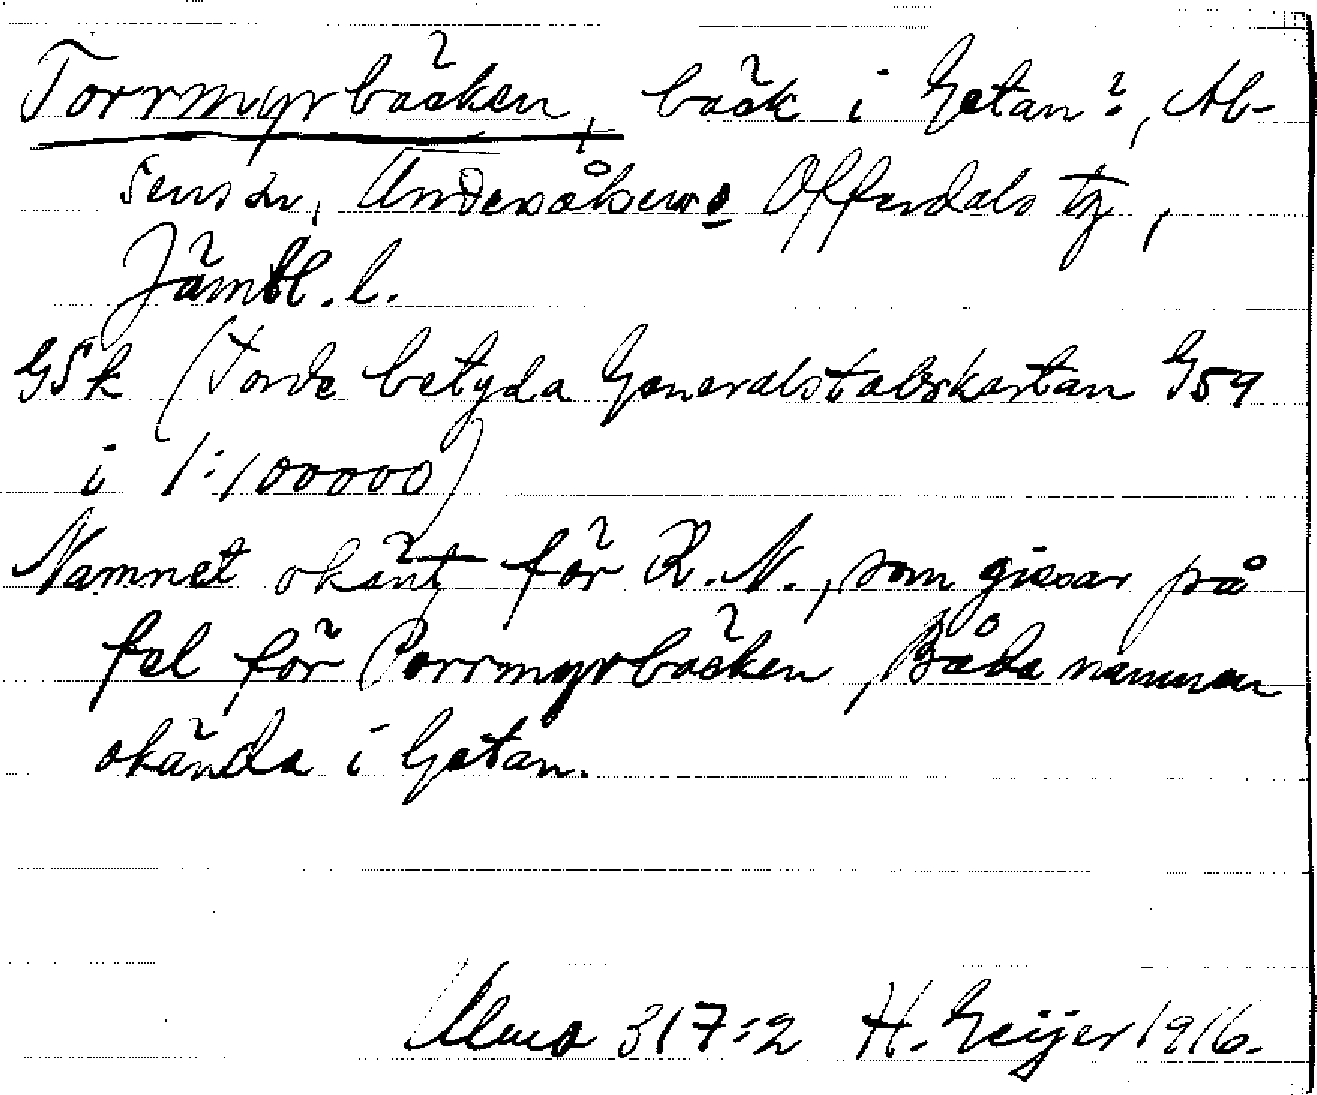 Torrmyrbäcken, bäck i Getan?, Al-
sens sn, Undersåkers o Offerdals tg,
Jämtl. l.
GSk (Torde betyda Generalstabskartan G59
i 1:100000)
Namnet okänt för R. N., som gissar på
fel för Porrmyrbäcken, Båda namnen
okända i Getan.
Ulma 317:2 H. Geijer 1916.